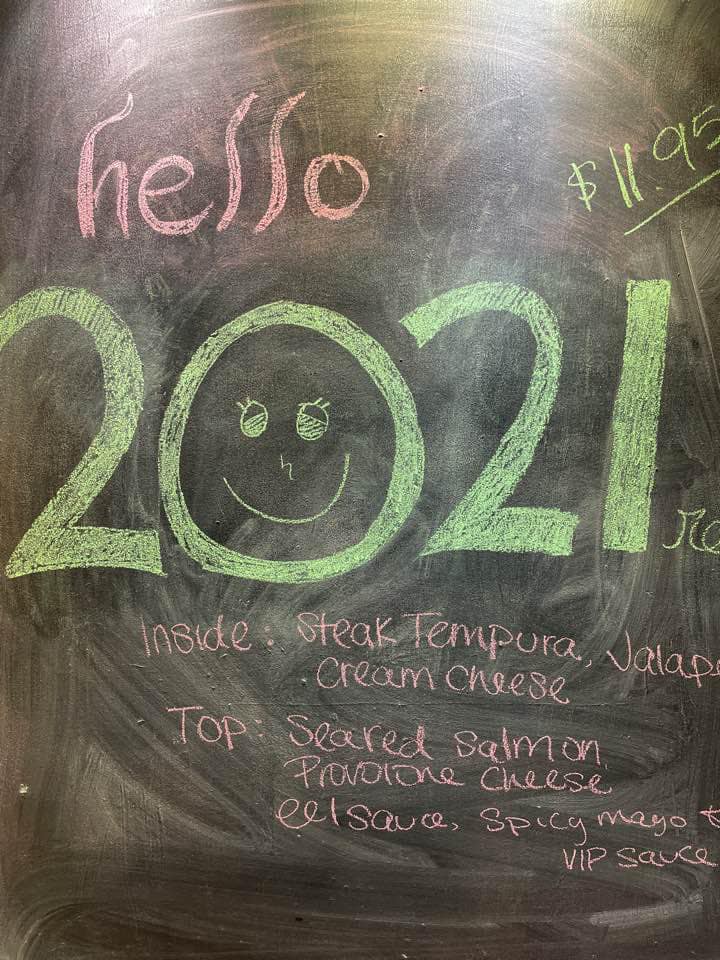 hello
$11.95
2021
Inside: Steak Tempura,
Cream Cheese
Top: Seared Salmon,
Provolone Cheese
eel sauce, spicy mayo
VIP sauce